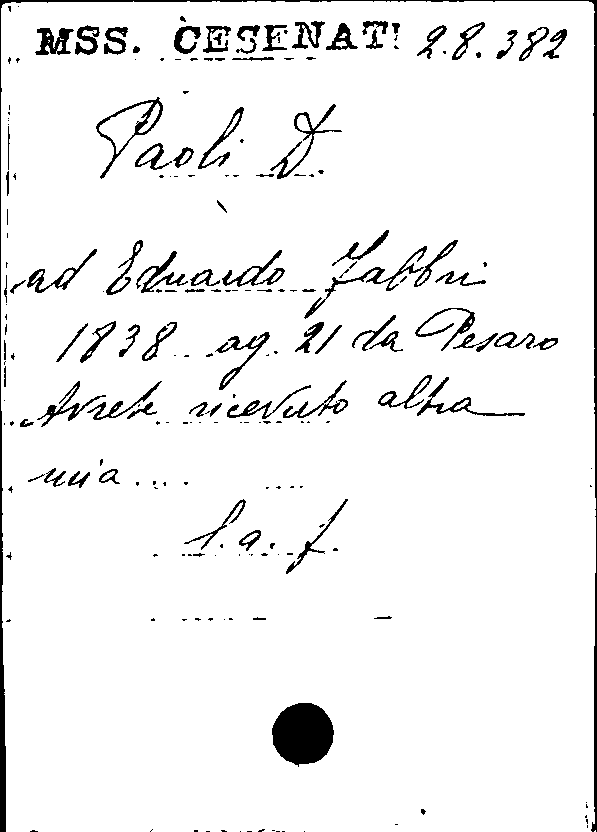 MSS. CESENATI 2.8.382
Paoli D.
ad Eduardo Fabbri
1838 ag. 21 da Pesaro
Avrete ricevuto altra
mia....
l. a. f.